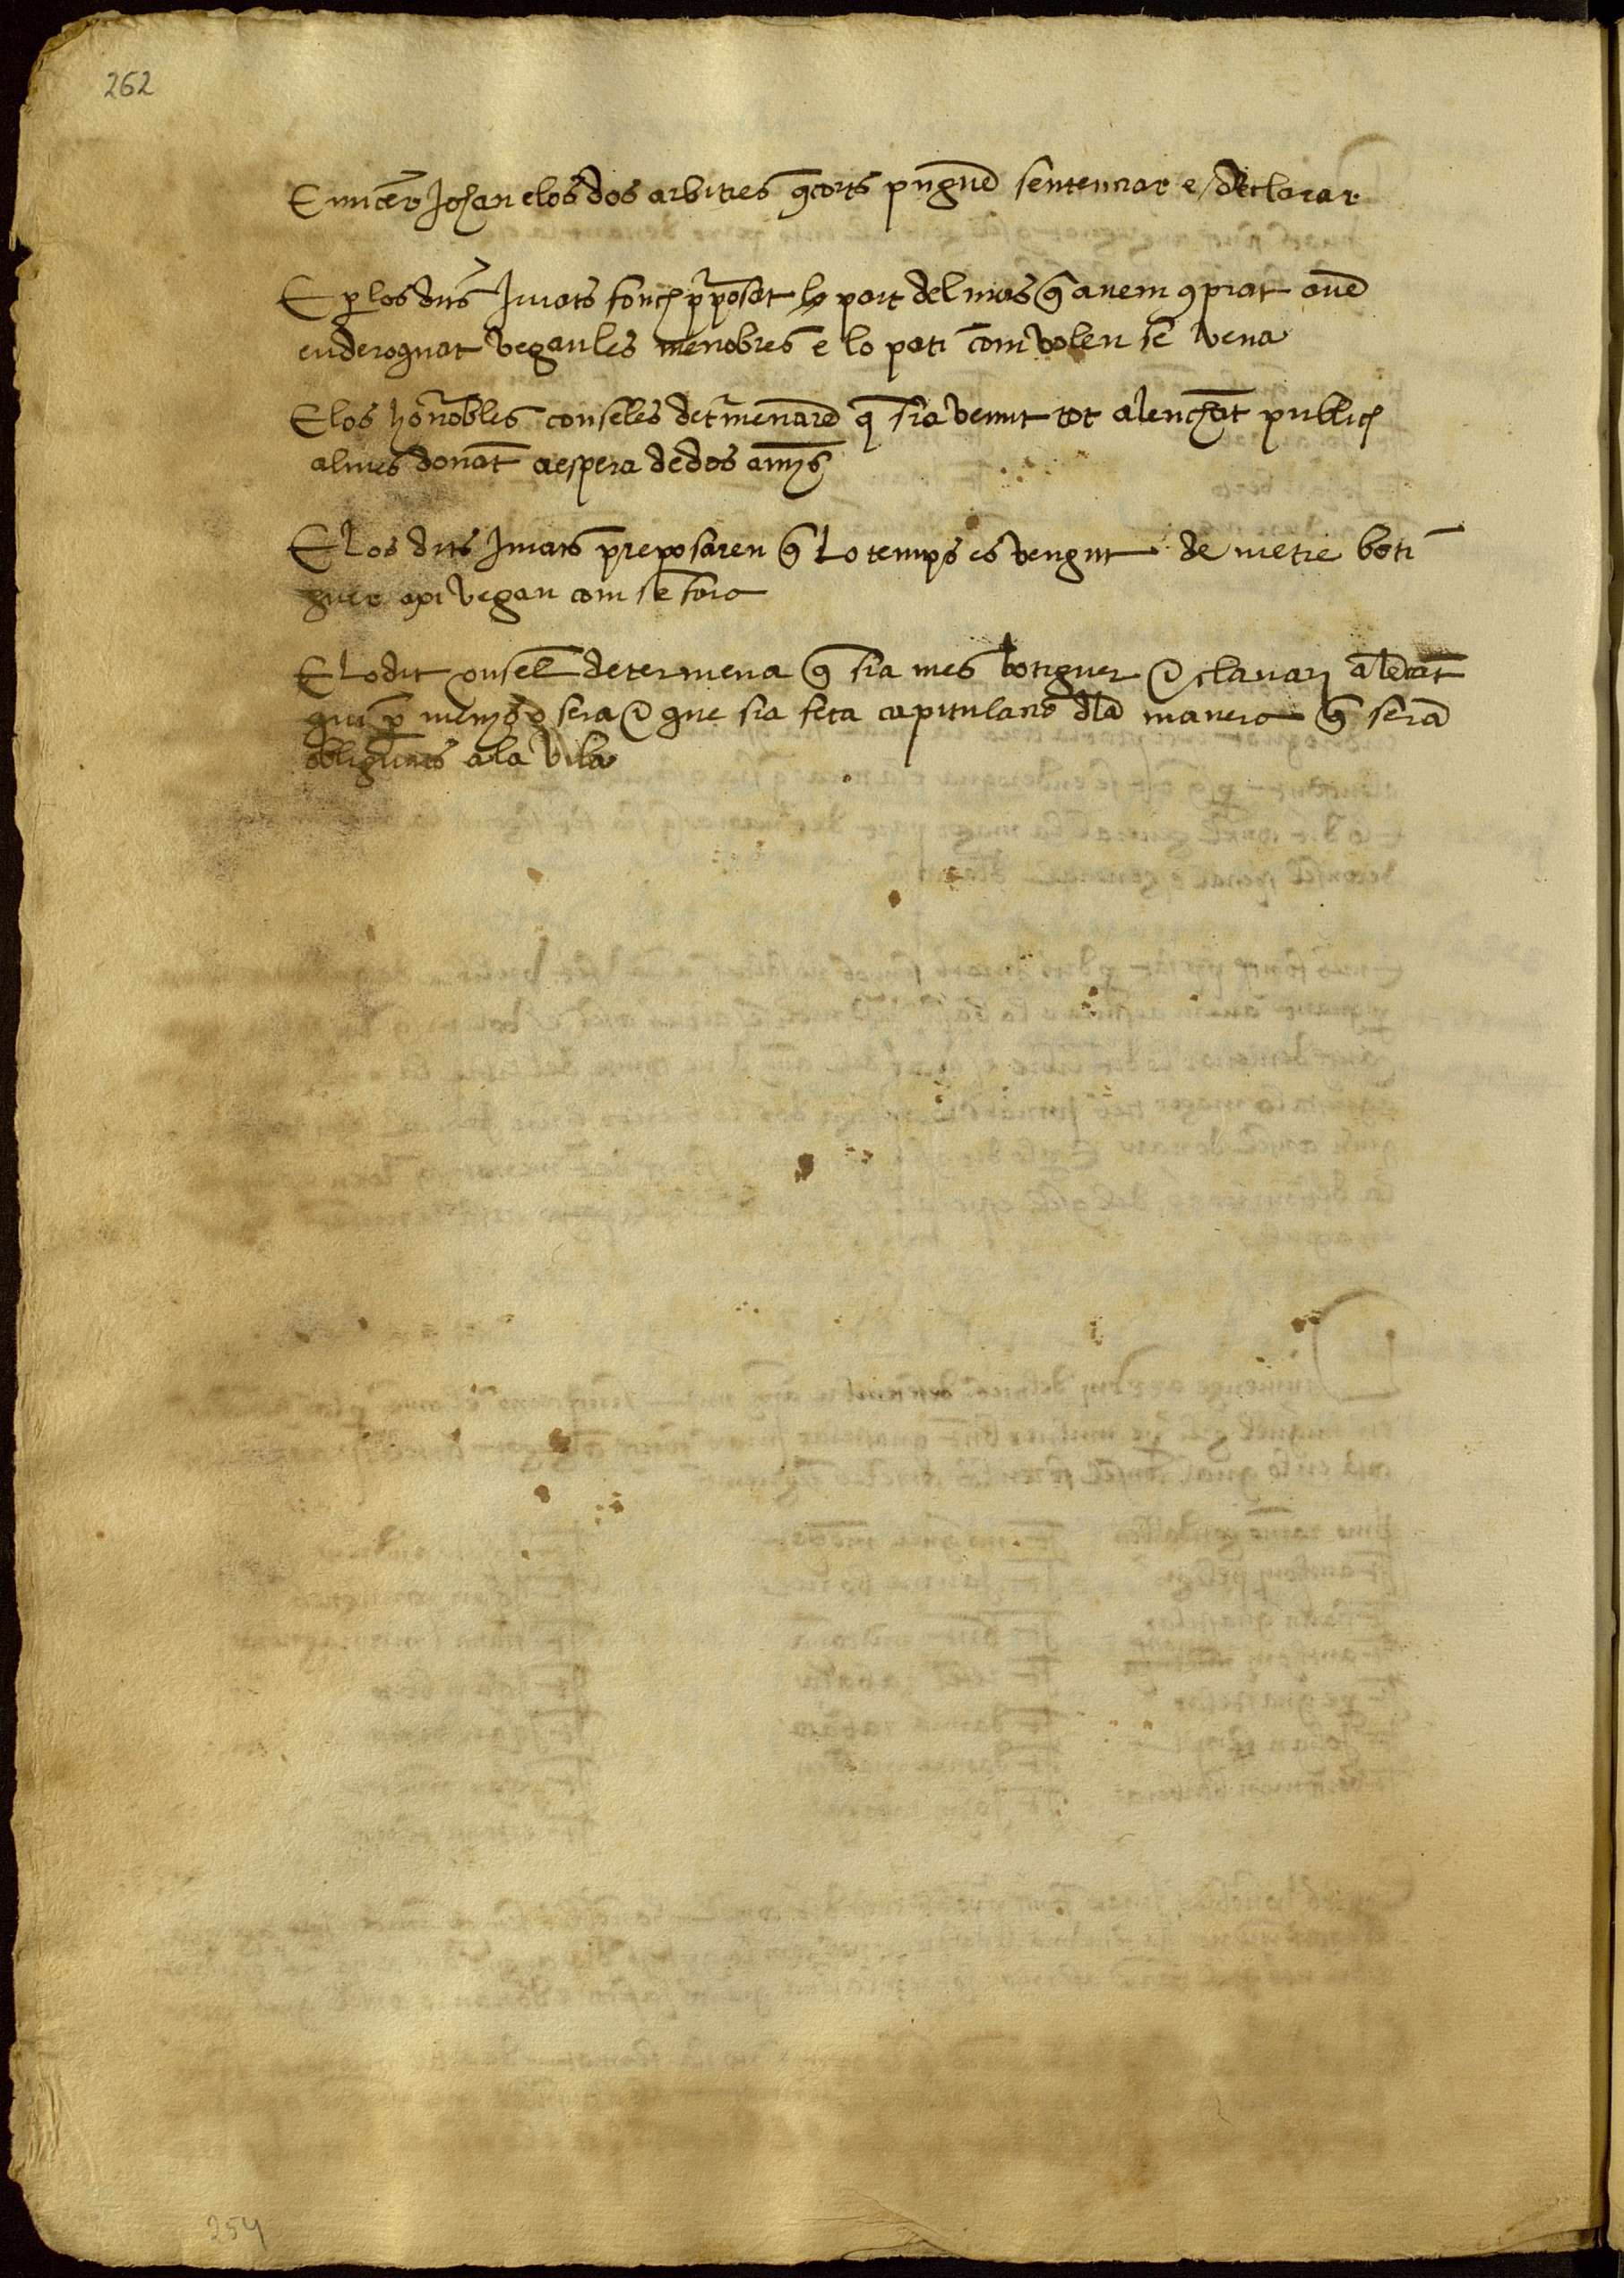 262
E micer Johan e los dos arbitres 9corts pugue sentenciar e declarar
E p los dits Jurats fonch pposat lo part del mas q avem 9prat ave
enderoguat vegau les menobres e lo pati com volen se vena
E los honrables conseles determenare q sia venut tot al encat publich
al mes donat a espera de dos anys
E los dits Jurats preposaren q lo temps es vengut de metre boti
guer api vegau com se fara
E lo dit consell determena q sia mes botiguer e clavari a la
qui p menys o sera e que sia feta capitulacio d la manera q sera
obliguats a la vila
254